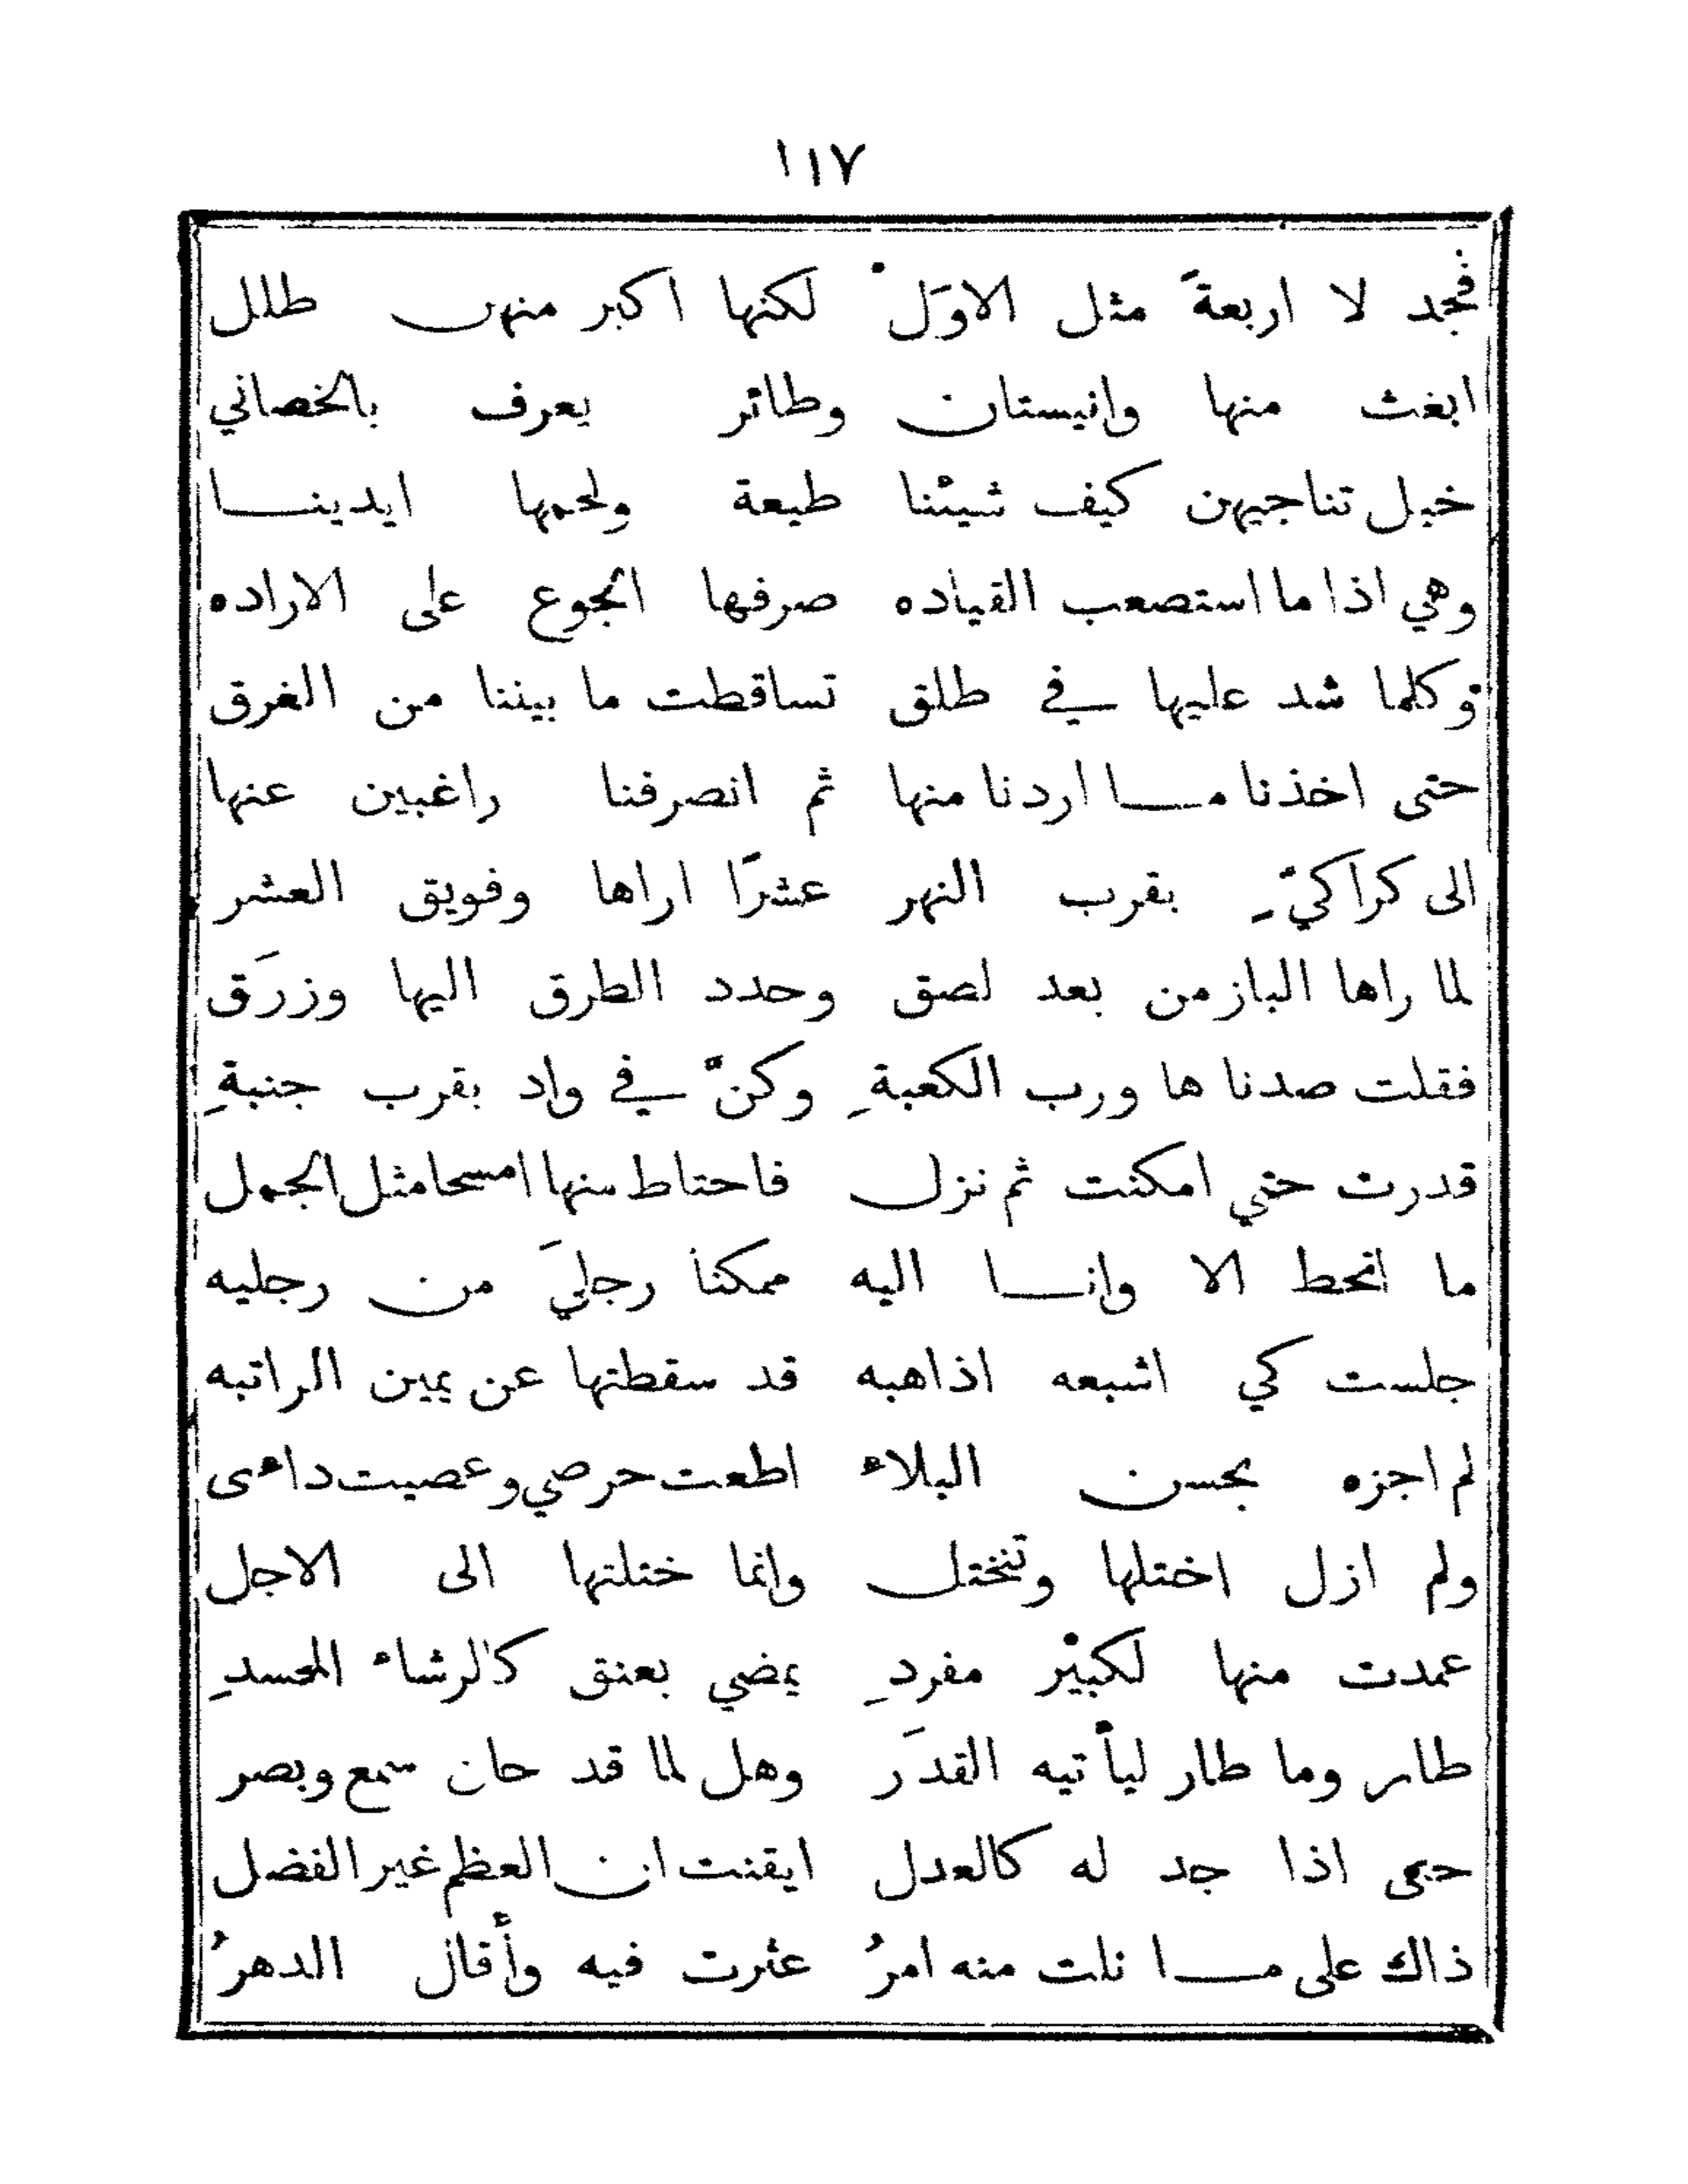 ١١٧
فجد لا اربعةً مثل الاوَلْ لكنها اكبر منهن طلل
ابغث منها وانيستان وطائر يعرف بالخصاني
خيل تناجيهن كيف شيْنا طيعة ولحمها ايدينا
وهي اذا ما استصعب القياده صرفها الجوع على الاراده
وكلما شد عليها في طلق تساقطت ما بيننا من الغرق
حتى اخذنا ما اردنا منها ثم انصرفنا راغبين عنها
الى كراكيّ بقرب النهر عشرًا اراها وفويق العشر
لما راها الباز من بعد لصق وحدد الطرق اليها وزرَق
فقلت صدنا ها ورب الكعبةِ وكنّ في واد بقرب جنبةِ
قدرت حتي امكنت ثم نزل فاحتاط منها امسحا مثل الجمل
ما انحط الا وانا اليه ممكنا رجليَ من رجليه
جلست كي اشبعه اذاهبه قد سقطتها عن يمين الراتبه
لم اجزه بحسن البلاء اطعت حرصي وعصيت داءى
ولم ازل اختلها وتنختل وانما ختلتها الى الاجل
عمدت منها لكبيْر مفردِ يمضي بعنق كالرشاء المحسدِ
طار وما طار ليأتيه القدَر وهل لما قد حان سمع وبصر
حتى اذا جد له كالعدل ايقنت ان العظم غير الفضل
ذاك على ما نلت منه امرُ عثرت فيه وأقال الدهرُ